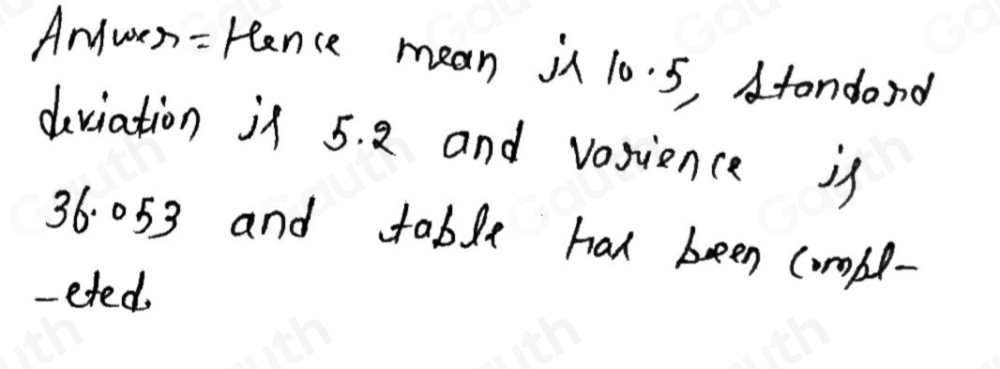 Answer = Hence mean is 10.5, standard
deviation is 5.2 and varience is
36.053 and table has been compl-
-eted.